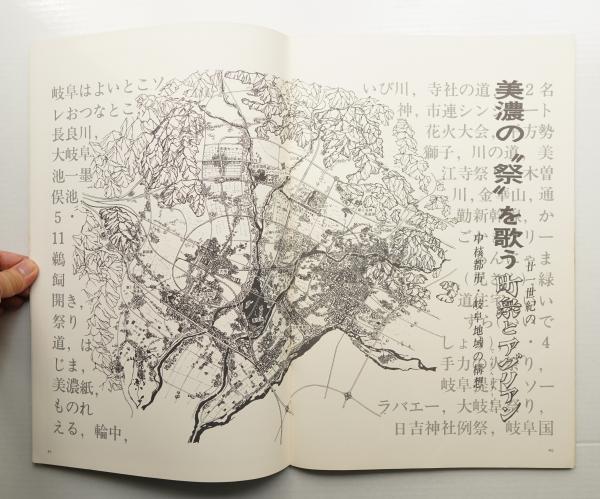 美濃の〝祭〟を歌う
廿一世紀の
町祭とアグリアン
中核都市・岐阜地域の構想
岐阜はよいとこソ
レおつなとこ
長良川,
大岐阜
池一墨
俣池
5・
11
鵜
飼
開き,
祭り
道, は
じま,
美濃紙,
ものれ
える, 輪中,
いび川, 寺社の道
2 名
神, 市連シン
ート
花火大会,
方勢
獅子, 川の道,
美
江寺祭
木曽
川, 金華山, 通
勤新幹
か
ご
り
ー
ま
緑
い
で
4
手力
り,
岐阜提
ソー
ラバエー, 大岐阜
り,
日吉神社例祭, 岐阜国